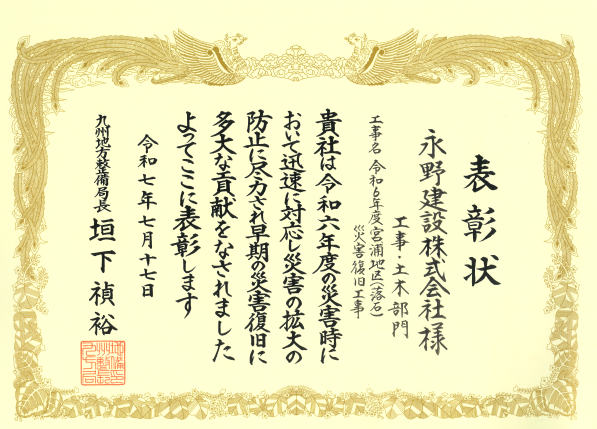 表彰状
永野建設株式会社様
工事・土木部門
工事名 令和6年度宮浦地区(落石)
災害復旧工事
貴社は令和六年度の災害時に
おいて迅速に対応し災害の拡大の
防止に尽力され早期の災害復旧に
多大な貢献をなされました
よってここに表彰します
令和七年七月十七日
九州地方整備局長 垣下禎裕